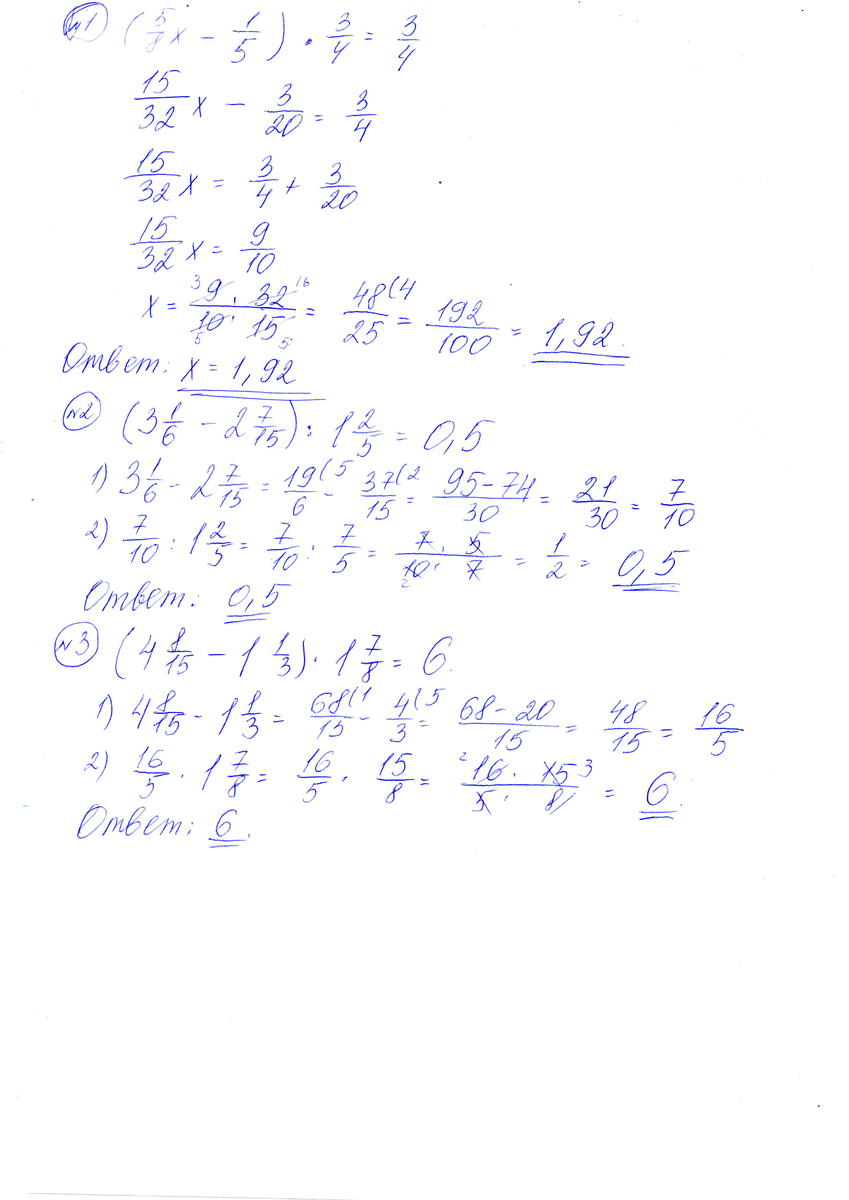 №1 (5/8 x - 1/5) · 3/4 = 3/4
15/32 x - 3/20 = 3/4
15/32 x = 3/4 + 3/20
15/32 x = 9/10
x = 9 · 32 / 10 · 15 = 48/25 (4 = 192/100 = 1,92.
Ответ: x = 1,92
№2 (3 1/6 - 2 7/15) : 1 2/5 = 0,5
1) 3 1/6 - 2 7/15 = 19/6 (5 - 37/15 (2 = 95-74/30 = 21/30 = 7/10
2) 7/10 : 1 2/5 = 7/10 : 7/5 = 7 · 5 / 10 · 7 = 1/2 = 0,5
Ответ: 0,5
№3 (4 8/15 - 1 1/3) · 1 7/8 = 6.
1) 4 8/15 - 1 1/3 = 68/15 (1 - 4/3 (5 = 68-20/15 = 48/15 = 16/5
2) 16/5 · 1 7/8 = 16/5 · 15/8 = 2 16 · 15 3 / 5 · 8 = 6.
Ответ: 6.